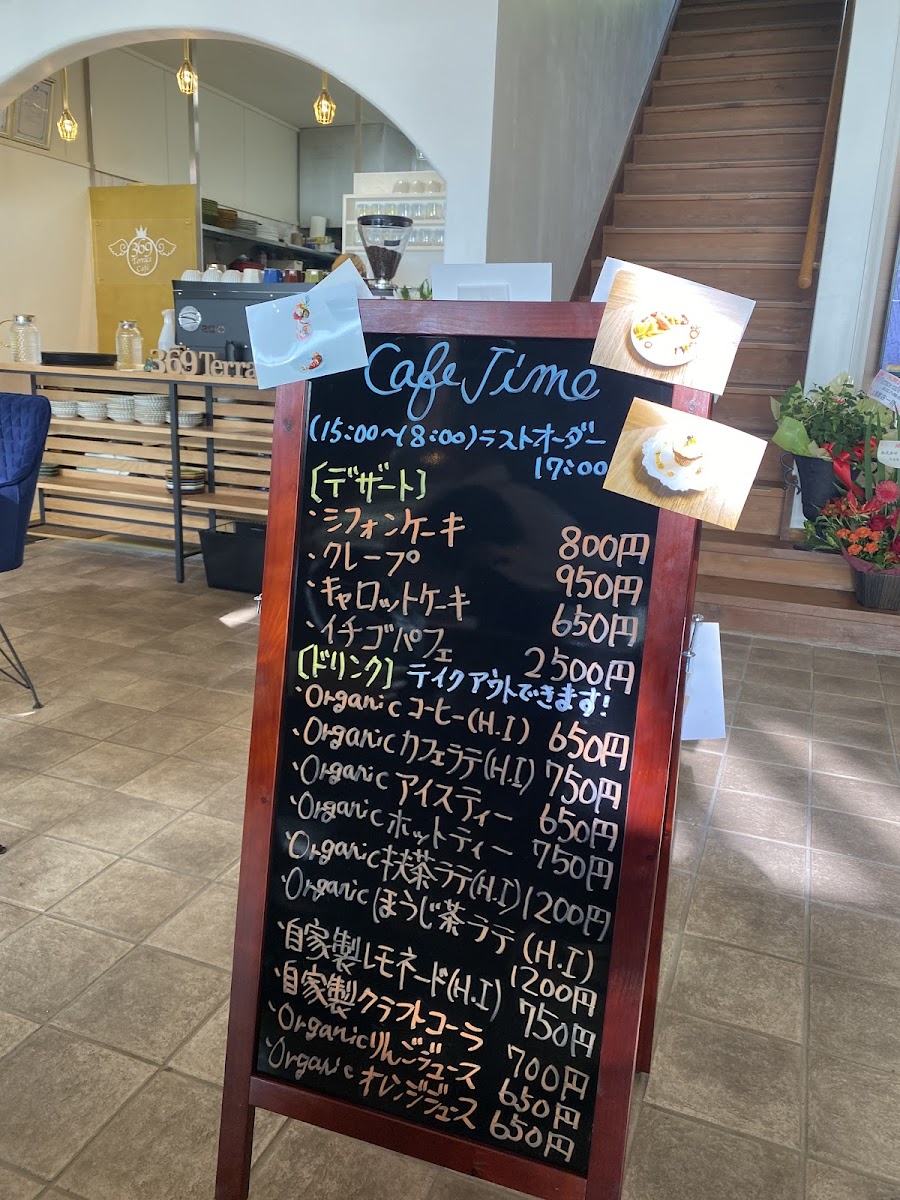 369
Terrace
Café
369 Terra
Cafe Time
(15:00〜18:00)ラストオーダー
17:00
[デザート]
・シフォンケーキ 800円
・クレープ 950円
・キャロットケーキ 650円
・イチゴパフェ 2500円
[ドリンク] テイクアウトできます!
・Organic コーヒー(H.I) 650円
・Organic カフェラテ(H.I) 750円
・Organic アイスティー 650円
・Organic ホットティー 750円
・Organic 抹茶ラテ(H.I) 1200円
・Organic ほうじ茶ラテ (H.I)
1200円
・自家製レモネード(H.I) 750円
・自家製クラフトコーラ 700円
・Organic りんごジュース 650円
・Organic オレンジジュース 650円